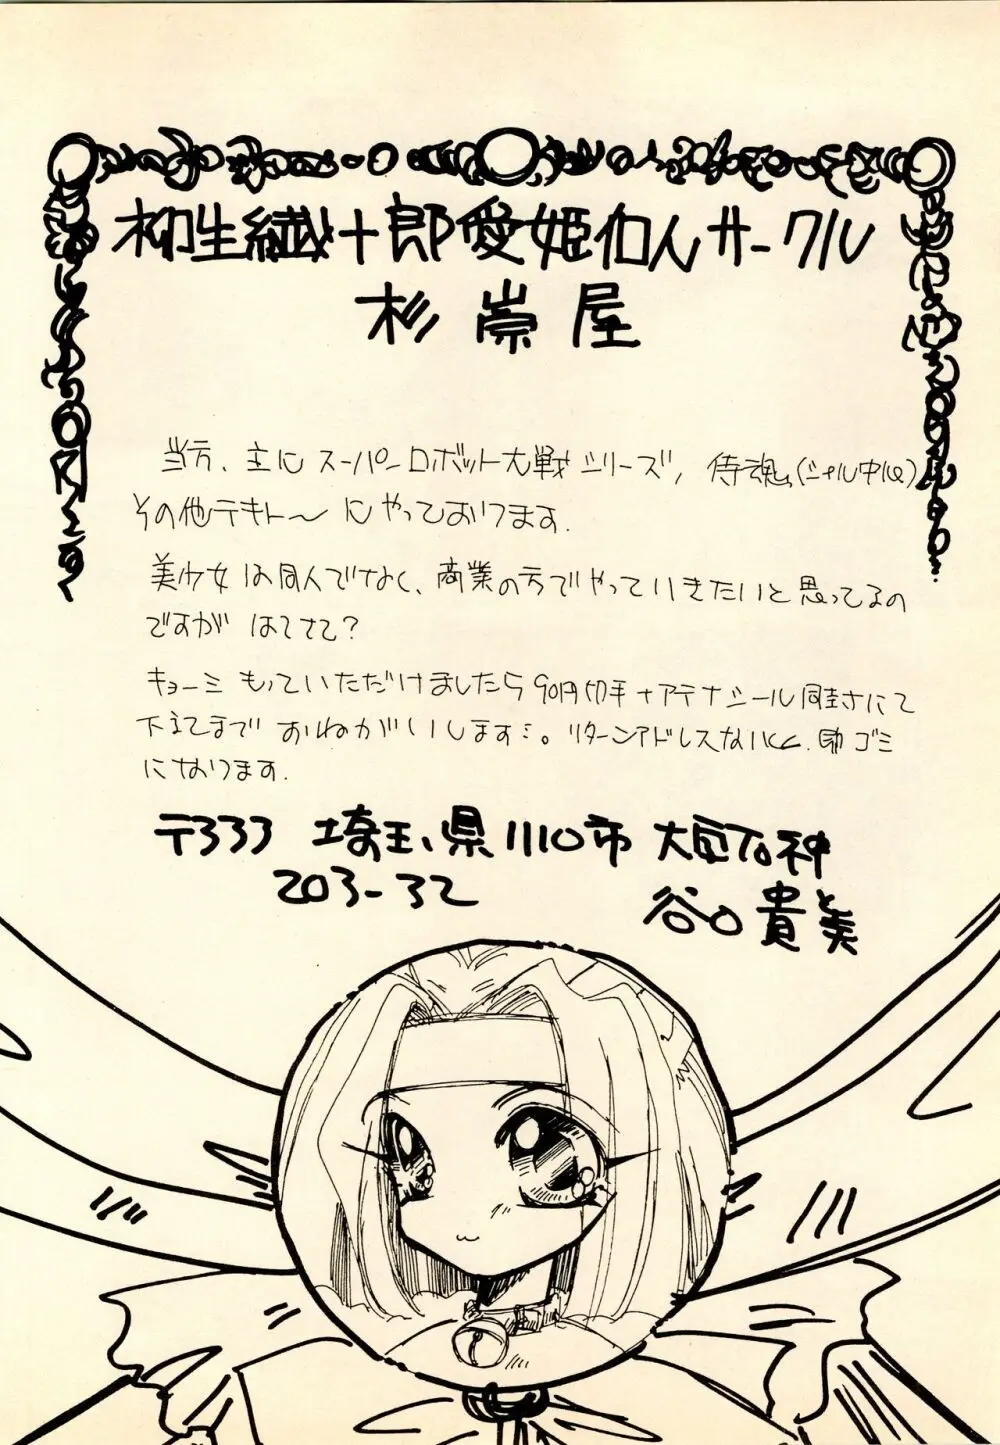 柳生繊十郎愛姫個人サークル
杉崇屋
当方、主に スーパーロボット大戦シリーズ、侍魂(シャル中心)
その他テキト〜 にやっております.
美少女は同人でなく、商業の方でやっていきたいと思ってるの
ですが はてさて?
キョーミ もっていただけましたら 90円切手+アテナシール同封にて
下記まで おねがいします。リターンアドレスないと、即ゴミ
になります.
〒333 埼玉県川口市
203-32
谷口貴美